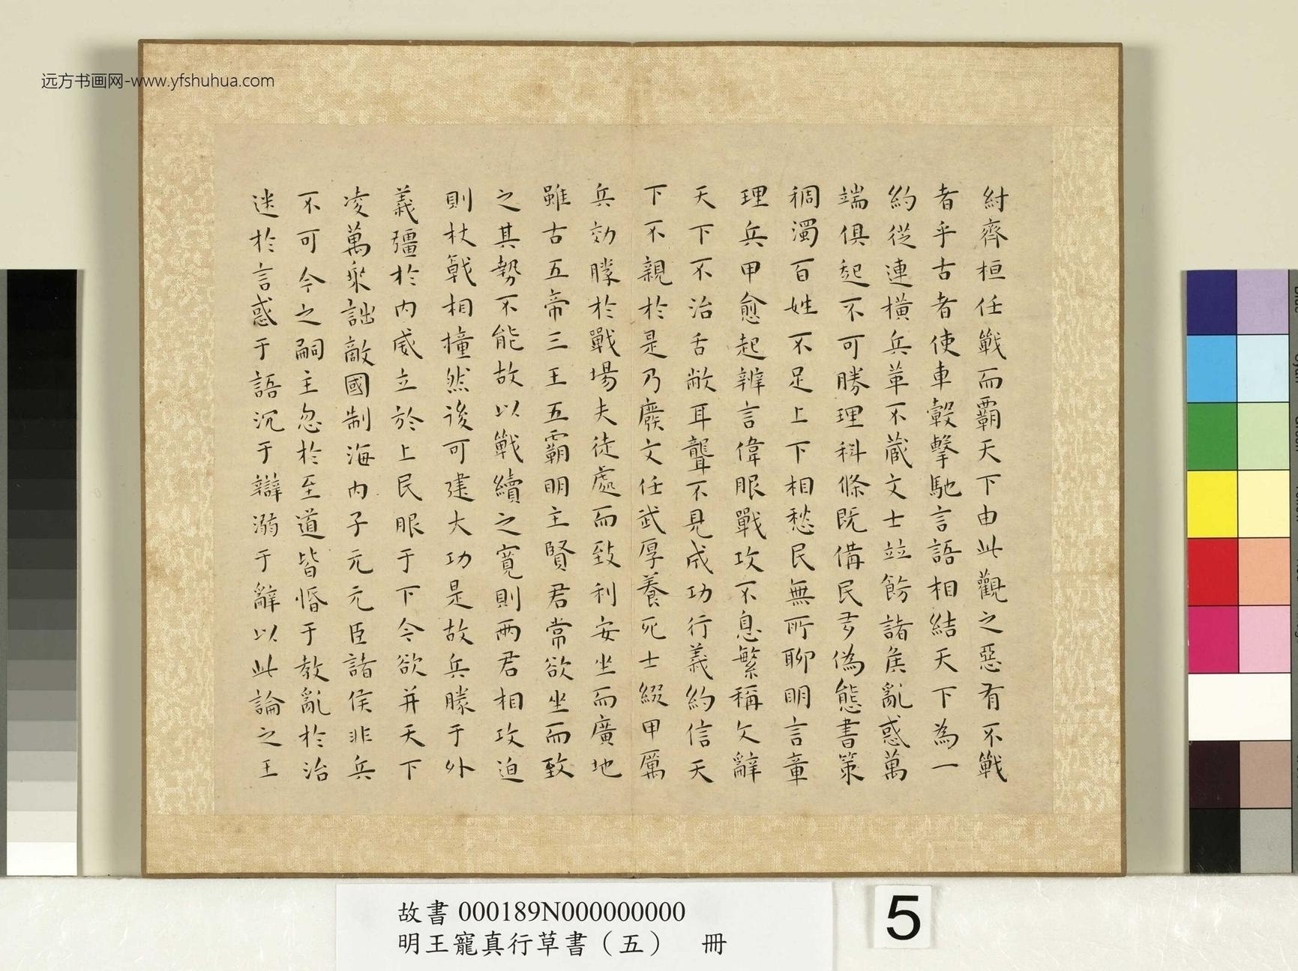 远方书画网-www.yfshuhua.com
紂齊桓任戰而霸天下由此觀之惡有不戰
者乎古者使車轂擊馳言語相結天下為一
約從連橫兵革不藏文士竝餝諸矦亂惑萬
端俱起不可勝理科條既俻民多偽態書策
稠濁百姓不足上下相愁民無所聊明言章
理兵甲愈起辨言偉服戰攻不息繁稱文辭
天下不治舌敝耳聾不見成功行義約信天
下不親於是乃廢文任武厚養死士綴甲厲
兵効勝於戰場夫徒處而致利安坐而廣地
雖古五帝三王五霸明主賢君常欲坐而致
之其勢不能故以戰續之寬則兩君相攻迫
則杖戟相撞然後可建大功是故兵勝于外
義彊於內威立於上民服于下今欲并天下
凌萬乘詘敵國制海內子元元臣諸侯非兵
不可今之嗣主忽於至道皆惛于教亂於治
迷於言惑于語沉于辯溺于辭以此論之王
故書 000189N000000000
明王寵真行草書（五） 冊
5